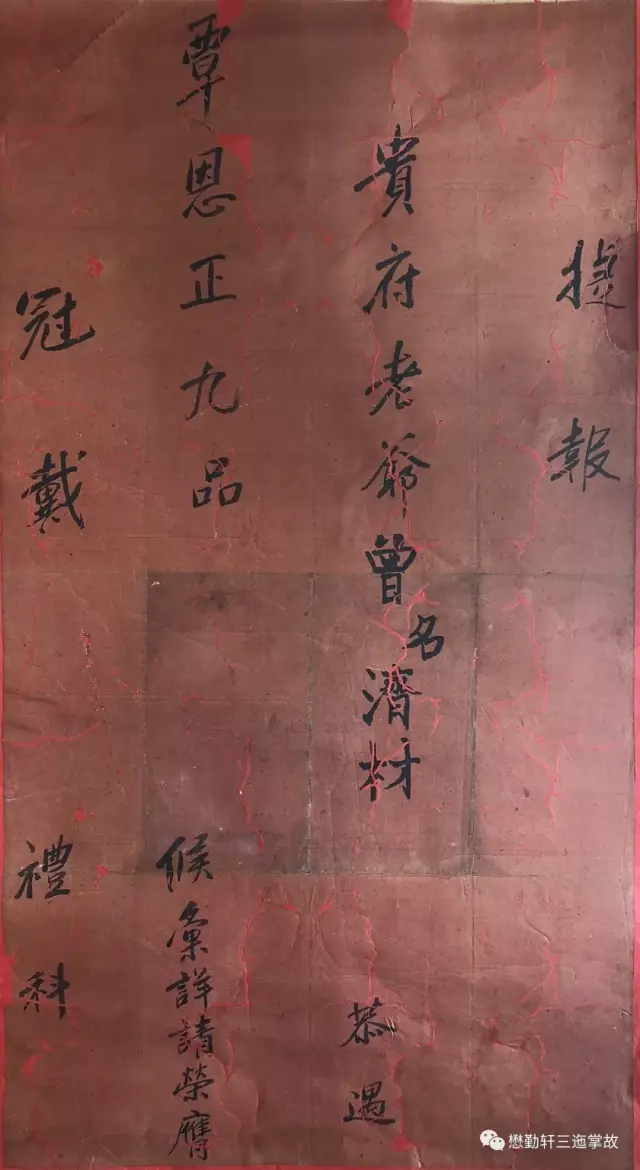 捷報
貴府老爺曾名濟材 恭遇
覃恩正九品 候彙詳請榮膺
冠戴 禮科
懋勤轩三迤掌故